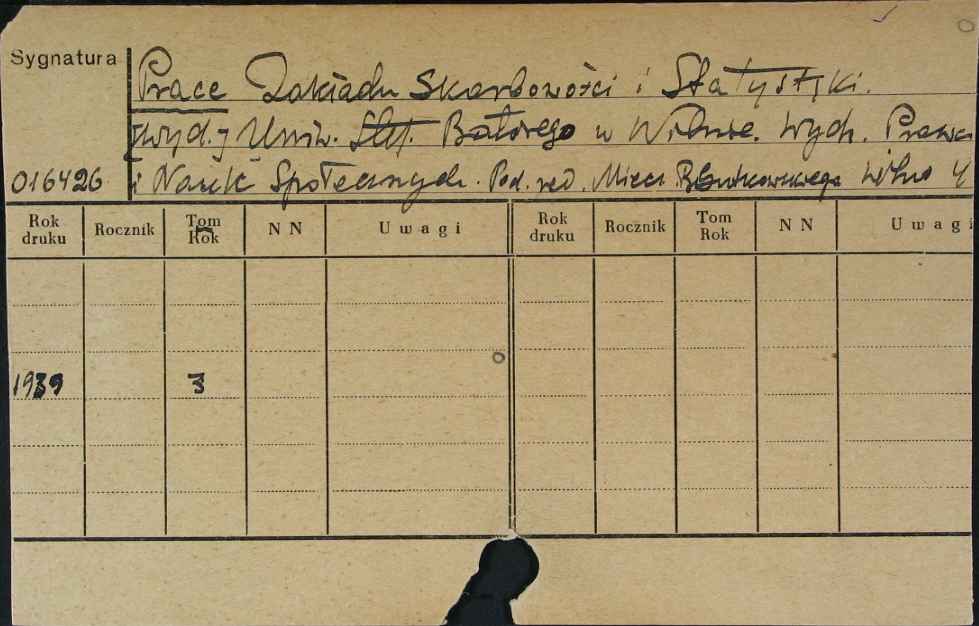 Sygnatura
Prace Zakładu Skarbowości i Statystyki.
[wyd.] Uniw. Stef. Batorego w Wilnie. Wydz. Prawa
016426 i Nauk Społecznych. Pod. red. Miecz. Wilno
Rok druku Rocznik Tom Rok N N Uwagi Rok druku Rocznik Tom Rok N N Uwagi
1939 3